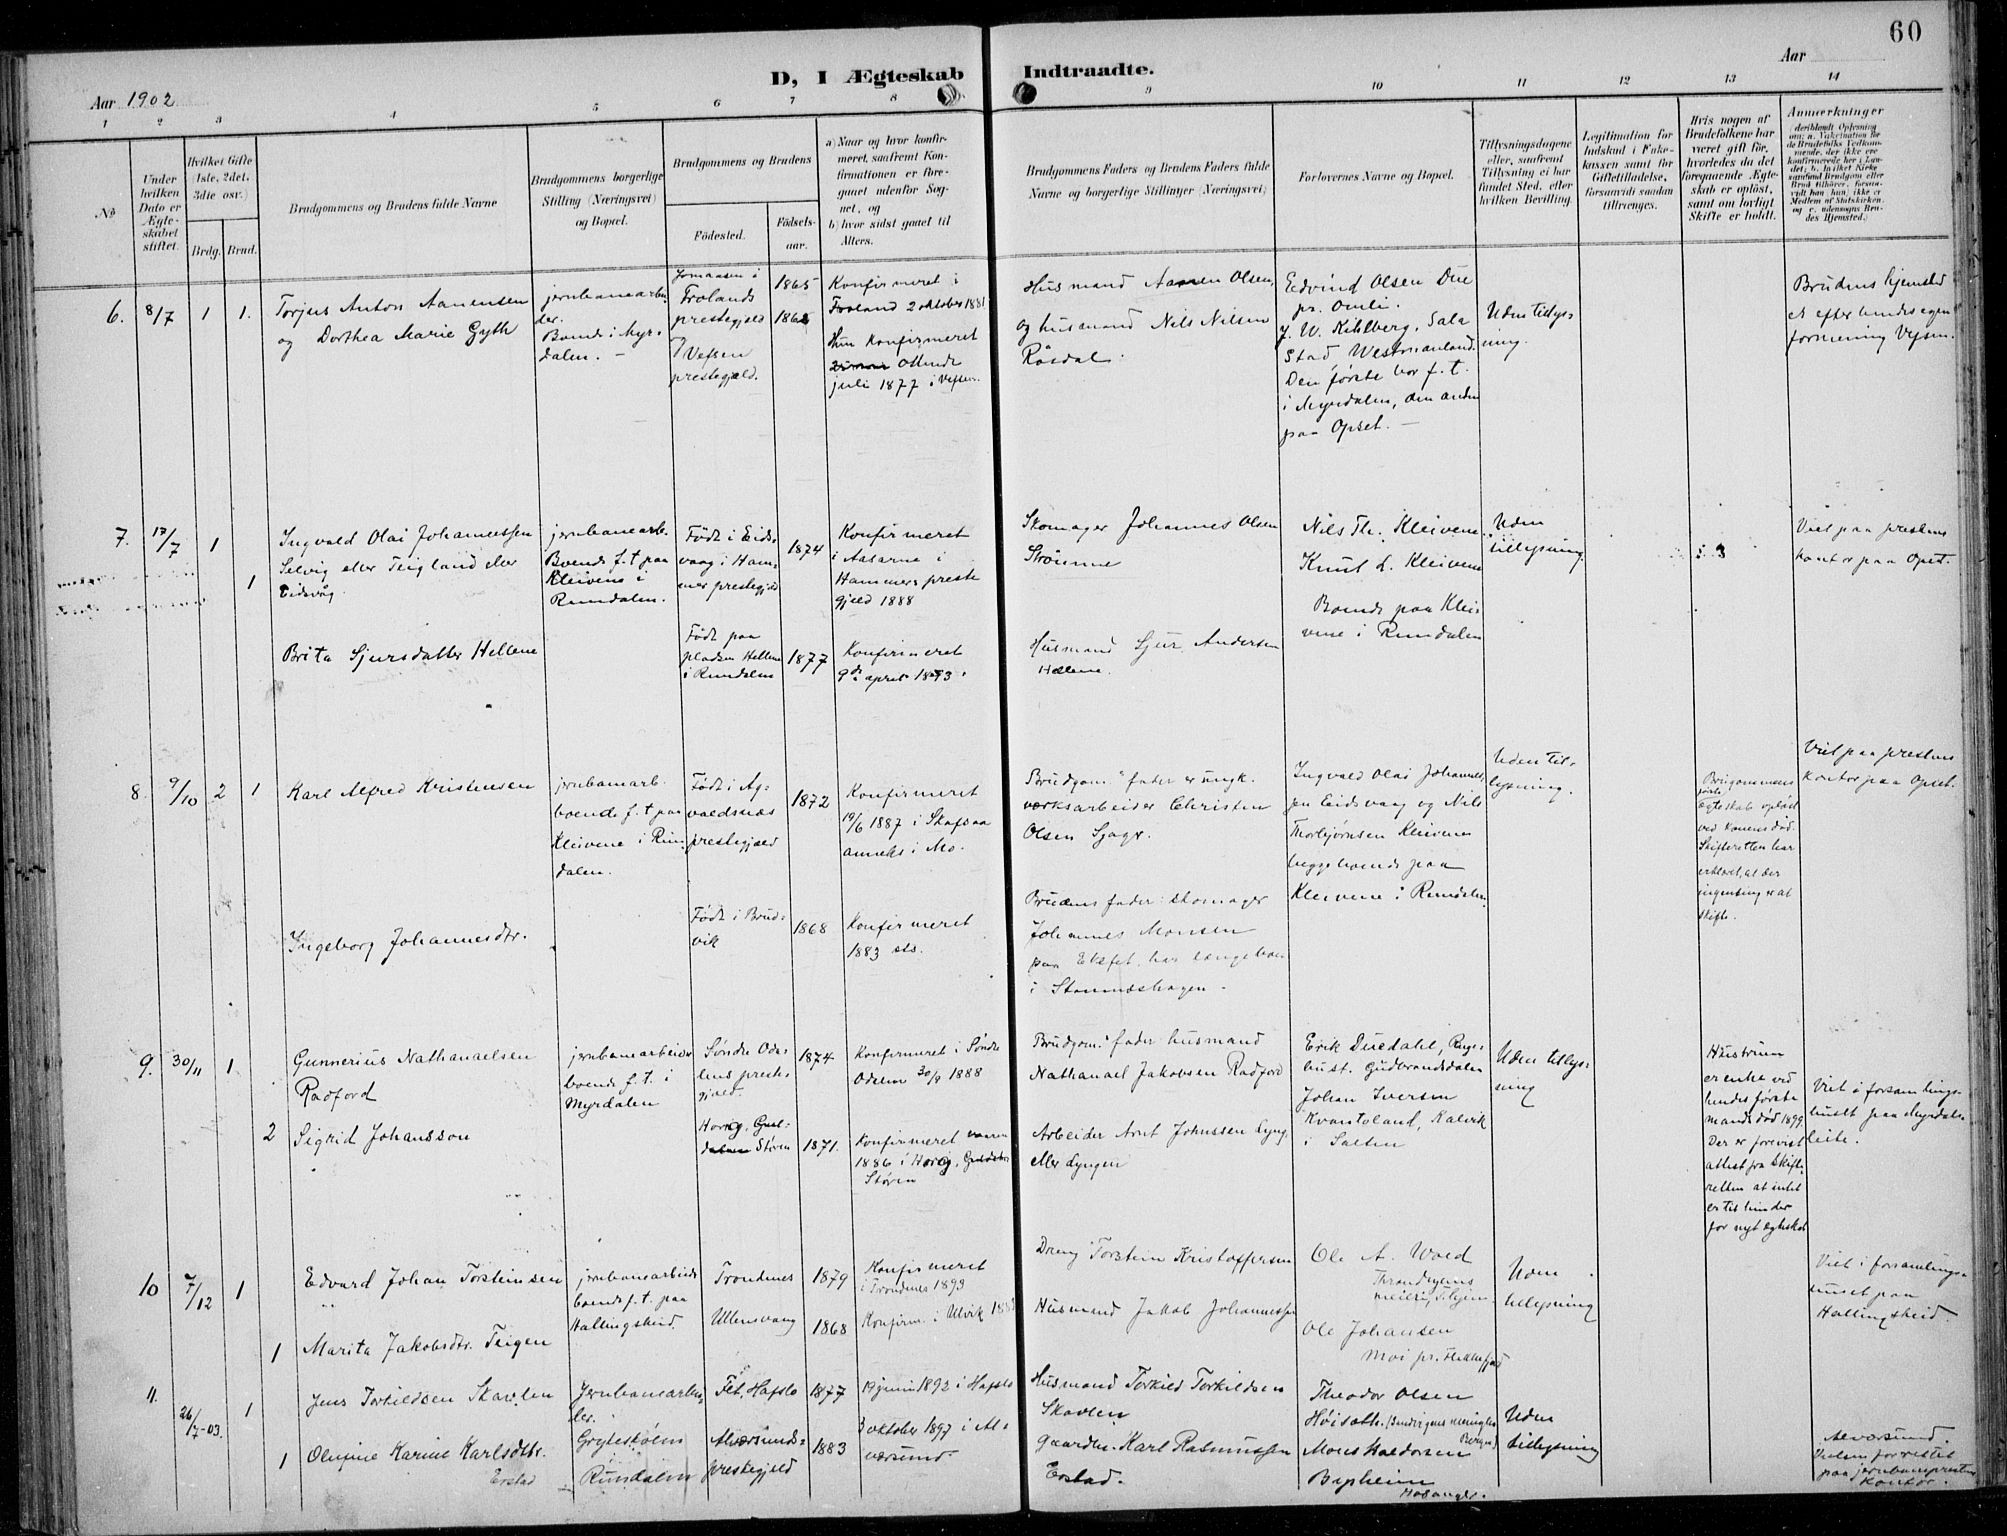 60
D, I Ægteskab Indtraadte.
Aar 1902
Aar
1 2 3 4 5 6 7 8 9 10 11 12 13 14
No
Under hvilken Dato er Ægteskabet stiftet.
Hvilket Gifte (1ste, 2det, 3die osv.)
Brdg. Brud.
Brudgommens og Brudens fulde Navne
Brudgommens borgerlige Stilling (Næringsvei) og Bopæl.
Brudgommens og Brudens
Fødested.
Fødselsaar.
a) Naar og hvor konfirmeret, saafremt Konfirmationen er foregaaet udenfor Sognet, og
b) hvor sidst gaaet til Alters.
Brudgommens Faders og Brudens Faders fulde Navne og borgerlige Stillinger (Næringsvei)
Forlovernes Navne og Bopæl.
Tillysningsdagene eller, saafremt Tillysning ei har fundet Sted, efter hvilken Bevilling.
Legitimation for Indskud i Enkekassen samt for Giftetilladelse, forsaavidt saadan tiltrænges.
Hvis nogen af Brudefolkene har været gift før, hvorledes da det foregaaende Ægteskab er opløst, samt om lovligt Skifte er holdt.
Anmærkninger
6. 8/7 1 1.
Torjus Anton Aanensen
og Dorthea Marie Gyth
jernbanearbeider.
Boende i Myrdalen. –
Jomaasen i
Frolands
prestegjeld
og
Vefsen
prestegjæld.
1865
Konfirmeret i
Froland 2 oktober 1881
Hun konfirmeret
ottende
juli 1877 i Vefsen.
Husmand Aanen Olsen,
og husmand Nils Nilsen
Røsdal.
Edvind Olsen Due
pr. Omli.
J. W. Kihlberg, Sala
Stad Westmanland.
Den første bor f. t.
i Myrdalen, den anden
paa Opset. –
Uden tillysning.
Brudens hjemsted
er efter hendes egen
formening Vefsen.
7. 17/7 1
1
Ingvald Olai Johannessen
Selvig eller Teigland eller
Eidsvåg
Brita Sjursdatter Hellene
jernbanearb.
Boende f. t paa
Kleivene i
Rundalen.
Født i Eidsvaag i Hammer prestegjeld
1874
Konfirmeret
i Aasarne i
Hammers prestegjeld 1888
Født paa
pladsen Hellene
i Rundalen
1877
Konfirmeret
9de april 1893.
Skomager Johannes Olsen
Strömme
Husmand Sjur Andersen
Hellene.
Nils Th. Kleivene
Knut L. Kleivene
Boende paa Kleivene i Rundalen
Uden
tillysning
Viet paa prestens
kontor paa Opset.
8. 9/10 2 1
Karl Alfred Kristensen
Ingeborg Johannesdtr.
jernbanarb.
boende f. t paa
Kleivene i Rundalen.
Født i Agvaldsnæs
prestegjæld
1872
Konfirmeret
19/6 1887 i Skafsaa
anneks i Mo.
Født i Brudvik
1868
Konfirmeret
1883 sts.
Brudgom." fader er ungk.
værksarbeider Christen
Olsen Sjagr.
Brudens fader: skomager
Johannes Monsen
paa Eksfet, har længe boet
i Stamneshagen.
Ingvald Olai Johannessen Eidsvaag og Nils
Thorbjørnsen Kleivene
begge boende paa
Kleivene i Rundalen.
Uden tillysning.
Brugommens
første
Egteskab opløst
ved konens død.
Skifteretten har
erklæret, at der
ingenting er at
skifte.
Viet paa prestens
kontor paa Opset.
9. 30/11 1
2
Gunnerius Nathanaelsen
Radford
Sigrid Johansson
jernbanearbeider
boende f. t. i
Myrdalen
Søndre Odalens prestegjeld.
1874
Konfirmeret i Søndre
Odalen 30/9 1888
Horg,
Støren
1871.
Konfirmeret vaaren
1886 i Horg,
Støren
Brudgom." fader husmand
Nathanael Jakobsen Radford
Arbeider Arnt Johnssen Lyng
eller Lyngen
Erik Duedahl, Ringebust. Gudbrandsdalen
Johan Iversen
Kvantoland, Kalvik
i Salten
Uden tillysning
Hustruen
er enke ved
hendes første
mands død 1899.
Der er forevist
attest fra Skifteretten at intet
er til hinder
for nyt egteskab
Viet i forsamlingshuset paa Myrdalsleite.
10 7/12 1
1
Edvard Johan Torsteinsen
Marita Jakobsdtr. Teigen
jernbanearbeider
boende f. t. paa
Hallingskeid.
Trondenes
1879
Konfirmeret
i Trondenes 1893
Ullensvang
1868
Konfirm. i Ulvik
Dreng Torstein Kristoffersen
Husmand Jakob Johannessen
Ole A. Wold
Throndhjems
meieri,
Ole Johansen
Moi pr. Flekkefjord
Uden
tillysning
Viet i forsamlingshuset paa
Hallingskeid.
11. 26/7-03. 1
1
Jens Torkildsen Skavlen
Olufine Karine Karlsdtr.
Erstad
Jernbanearbeider.
Grjoteskølen
Rundalen
Fet, Hafslo
1877
19 juni 1892 i Hafslo
Alversunds
prestegjeld
1883
3 oktober 1897 i Alversund
Husmand Torkild Torkildsen
Skavlen
Gaardbr. Karl Rasmussen
Erstad.
Theodor Olsen
Bergen)
Mons Haldorsen
Hosanger.
Uden
tillysning
Alversund.
Vielsen forrettet
paa jernbaneprestens
kontor.